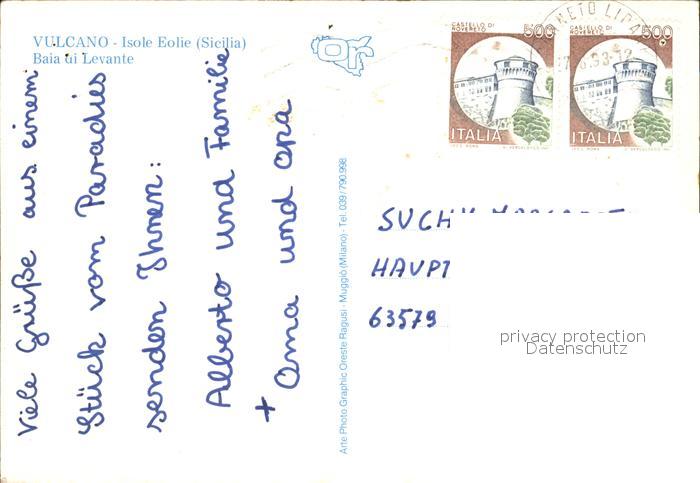 VULCANO - Isole Eolie (Sicilia)
Baia di Levante
Viele Grüße aus einem
Stück vom Paradies
senden Ihnen:
Alberto und Familie
+ Oma und Opa
Arte Photo Graphic Oreste Ragusi - Muggiò (Milano) - Tel. 039/790.998
CASTELLO DI
ROVERETO
500
ITALIA
CASTELLO DI
ROVERETO
500
ITALIA
SUCHY
HAUPT
63579
privacy protection
Datenschutz